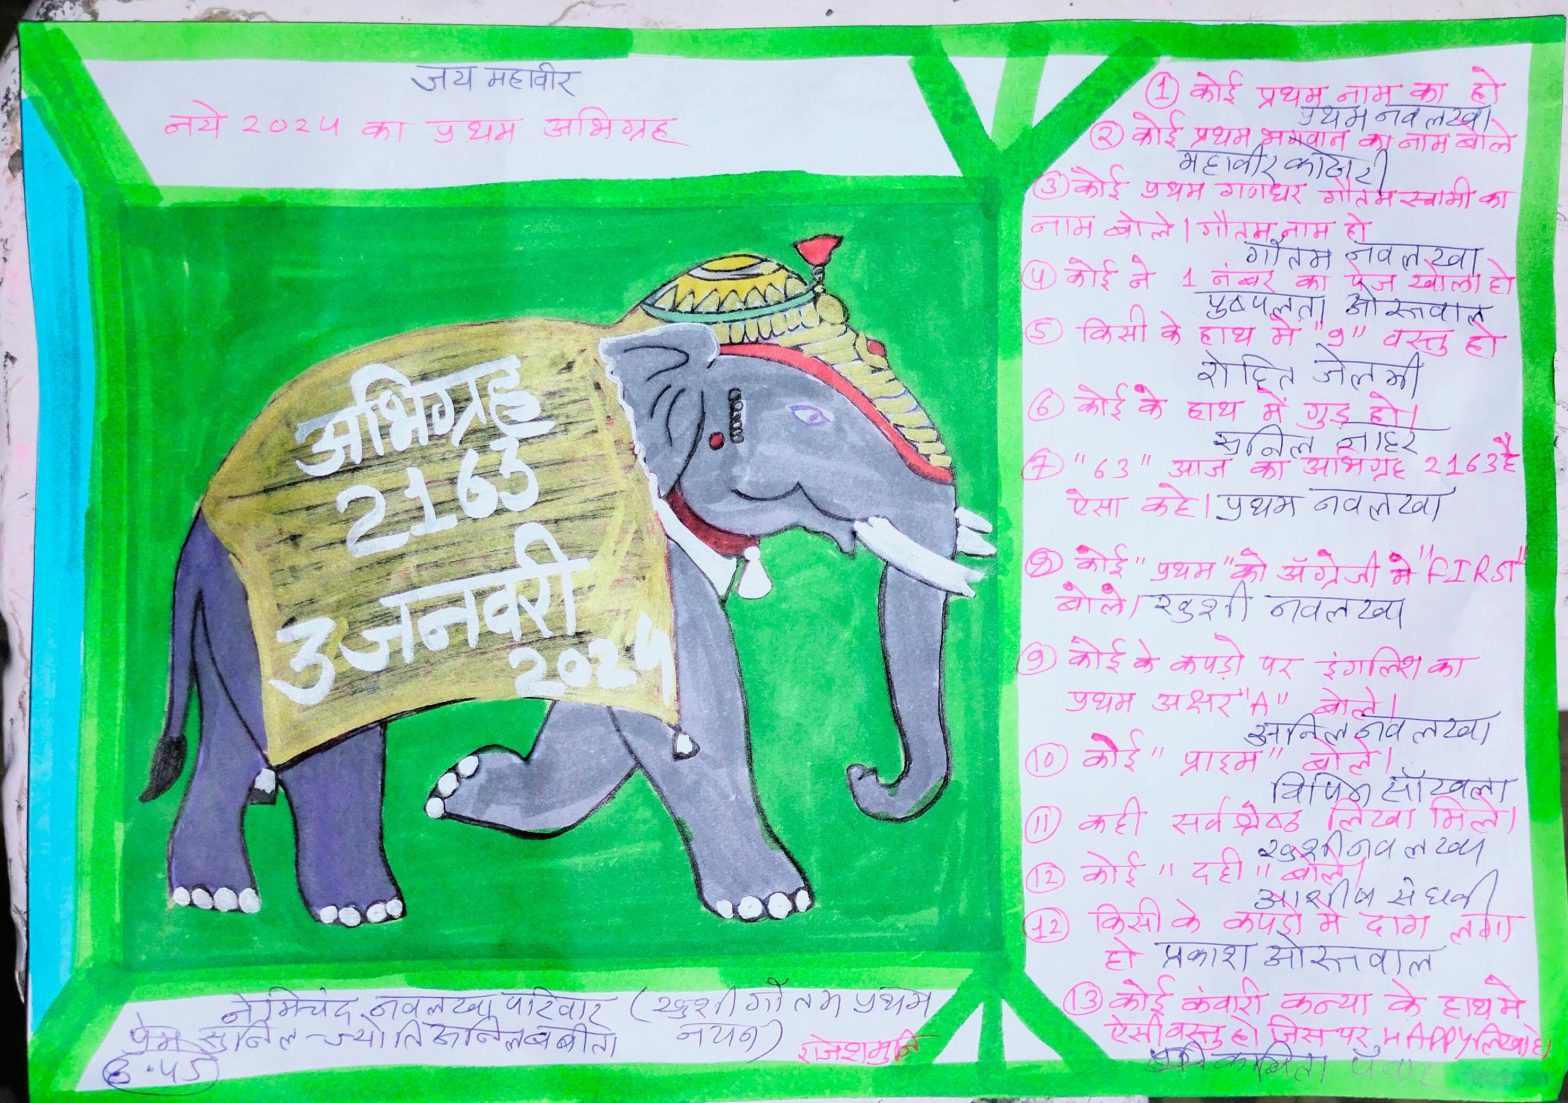 जय महावीर
नये २०२५ का प्रथम अभिग्रह
अभिग्रह
2163
3 जनवरी
२०२५
① कोई प्रथम नाम का हो
प्रथम नवलखा
② कोई प्रथम भगवान का नाम बोले
महावीर कोठारी
③ कोई प्रथम गणधर गौतम स्वामी का
नाम बोले। गौतम नाम हो
गौतम नवलखा
④ कोई ने 1 नंबर का पेज खोला हो
पुष्पलता ओस्तवाल
⑤ किसी के हाथ में "9" वस्तु हो
रोहित
⑥ कोई के हाथ में गुड़ हो।
सुनिल नाहर
⑦ "63" आज का अभिग्रह 2163 है
ऐसा कहे। प्रथम नवलखा
⑧ कोई "प्रथम" को अँग्रेजी में "FIRST"
बोले। खुशी नवलखा
⑨ कोई के कपड़ो पर इंगलिश का
प्रथम अक्षर "A" बोले।
अनिल नवलखा
⑩ कोई "प्राइम" बोले।
विपिन साँखला
⑪ कही सर्वश्रेष्ठ लिखा मिले।
खुशी नवलखा
⑫ कोई "दही" बोले।
आशीष संघवी
⑫ किसी के कपड़ो में दाग लगा
हो प्रकाश ओस्तवाल
⑬ कोई कंवारी कन्या के हाथ मे
ऐसी वस्तु हो जिस पर HAPPY लिखा हो
कविता पँवार
नेमिचंद नवलखा परिवार (खुशी गौतम प्रथम
प्रेम सुनिल-ज्योति अनिल बबीता नयन)
राजेशमुनि
6.45